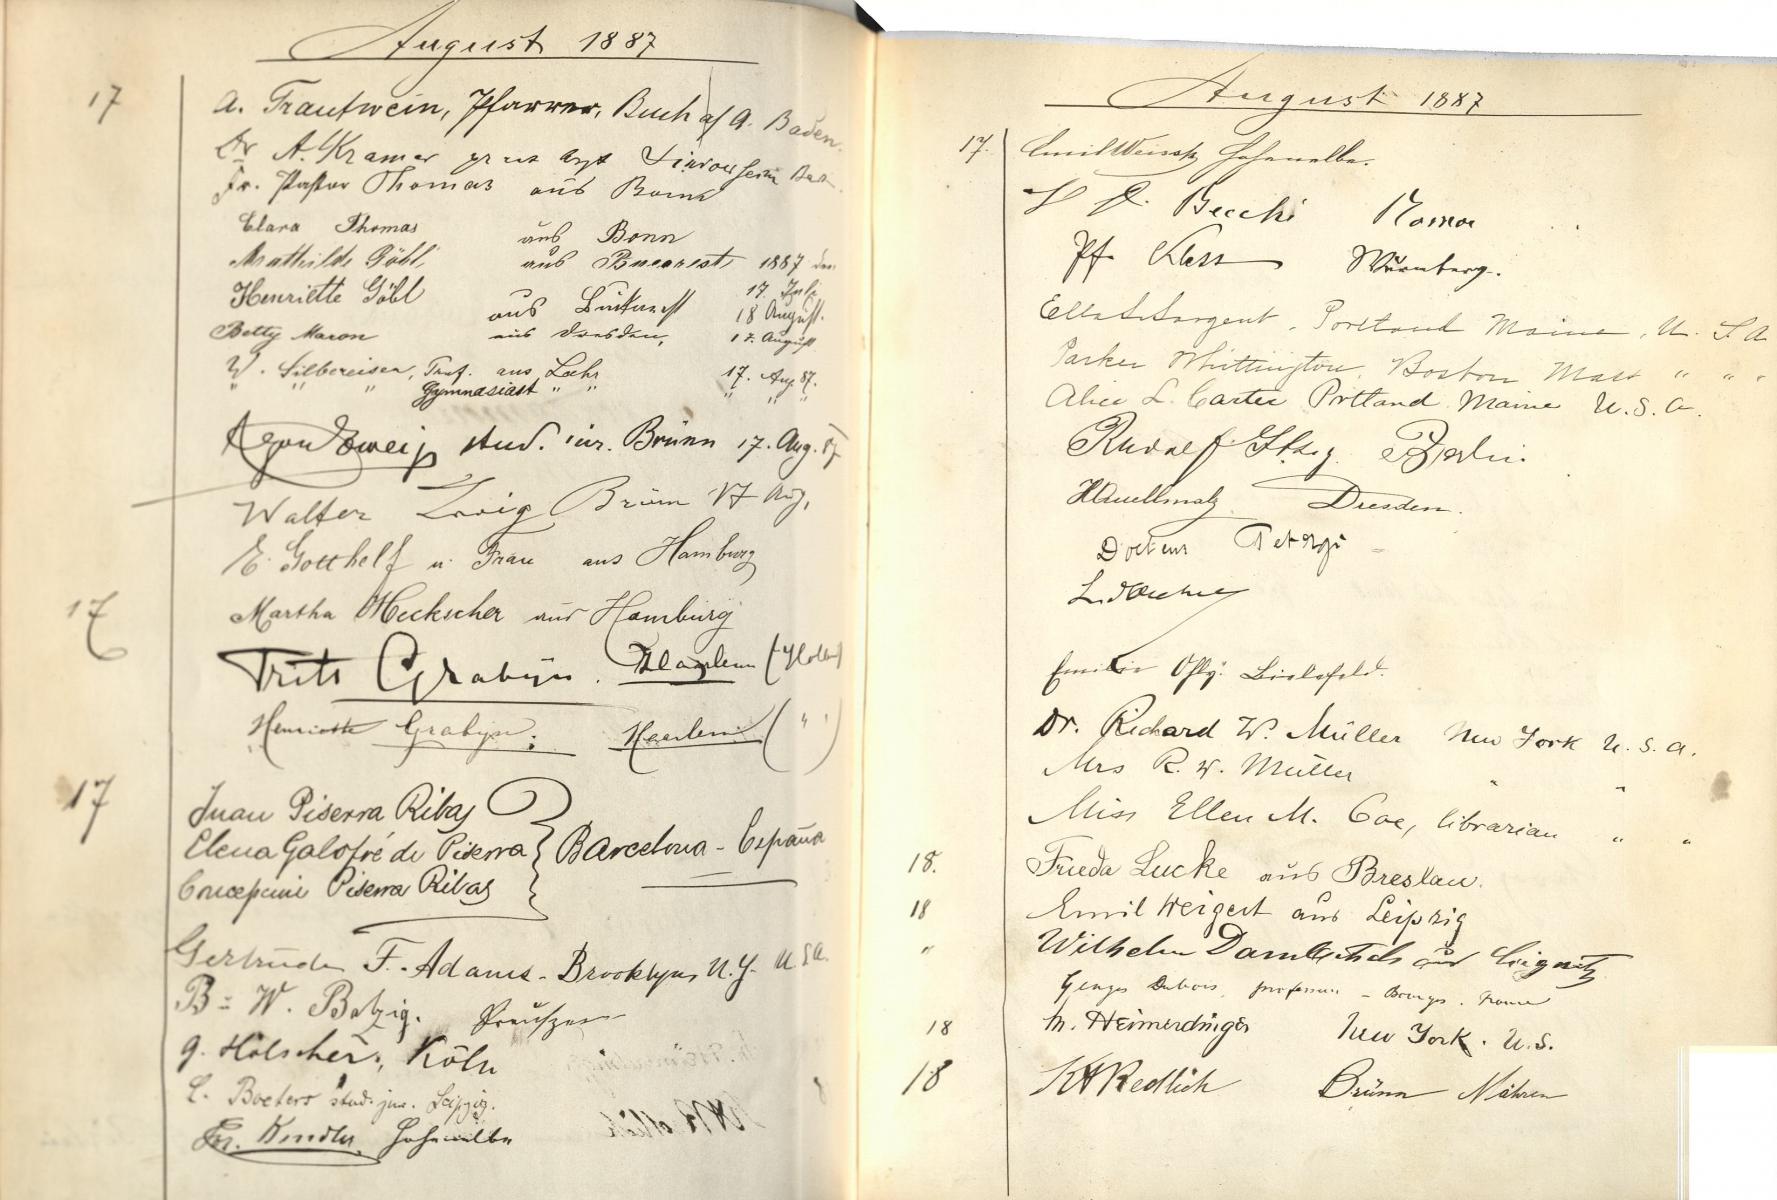 August 1887
17 A. Trautwein, Pfarrer, Buch a/ A. Baden.
Dr A. Kramer pract Arzt
Fr. Pastor Thomas aus Bonn
Clara Thomas aus Bonn
Mathilde Göbl aus Bucarest 1887 den
Henriette Göbl aus Bukarest 17. Juli 18 August.
Betty Maron aus Dresden, 17. August
W. Silbereisen, Prof. aus Lahr 17. Aug 87.
" " " Gymnasiast " " " " "
Egon Zweig stud. iur. Brünn 17. Aug. 87
Walter Brünn 17 Aug.
E. Gotthelf u. Frau aus Hamburg
17 Martha Heckscher aus Hamburg
Frits Grabijn. Haarlem (Holland)
Henriette Grabijn; Haarlem ( " " )
17 Juan Piserra Ribas
Elena Galofré de Piserra } Barcelona - España
Piserra Ribas
Gertrude F. Adams - Brooklyn, N.Y. U.S.A.
B= W. Botzig. Preußen
G. Hölscher, Köln
C. Boeters stud. jur. Leipzig.
Fr. Kindler, Hohenelbe
August 1887
17. Emil Hohenelbe.
Becchi Roma
Pf. Klett Nürnberg.
Ella S. Sargent, Portland Maine, U. S. A
Parker Whittington, Boston Mass " " "
Alice L. Carter Portland Maine U. S. A.
Rudolf Berlin.
Dresden.
Docteur
Emilie Bielefeld.
Dr. Richard W. Müller New York U. S. A.
Mrs R. W. Müller " "
Miss Ellen M. Coe, librarian " "
18. Frieda Lucke aus Breslau.
18 Emil Weigert aus Leipzig
" Wilhelm aus Liegnitz
Georges Dubois, professeur - Bourges. France
18 M. Heimerdinger New York. U. S.
18 Redlich Brünn Mähren